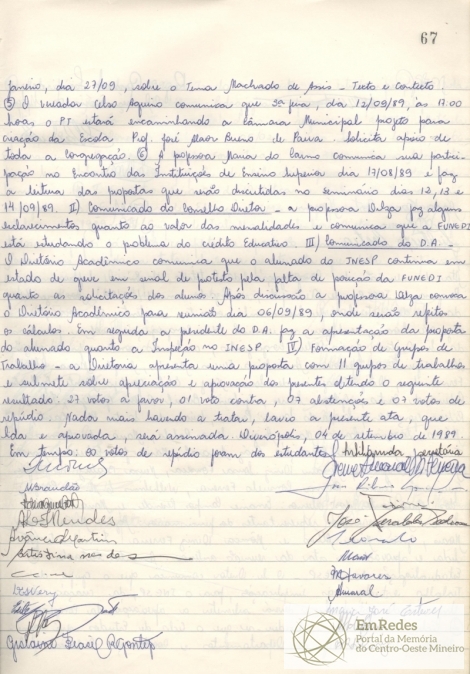 67
Janeiro, dia 27/09, sobre o Tema Machado de Assis - Texto e Contexto.
⑤ O vereador Celso Aquino comunica que 3ª feira, dia 12/09/89, às 17:00
horas o PT estará encaminhando a Câmara Municipal projeto para
criação da Escola Prof. José Maor Bueno de Paiva. Solicita apoio de
toda a congregação. ⑥ A professora Maria do Carmo comunica sua partici-
pação no Encontro das Instituições de Ensino Superior dia 17/08/89 e faz
a leitura das propostas que serão discutidas no seminário dias 12, 13 e
14/09/89. II) Comunicado do Conselho Diretor - a professora Dilza faz alguns
esclarecimentos quanto ao valor das mensalidades e comunica que a FUNEDI
está estudando o problema do crédito Educativo. III) Comunicado do D.A. -
O Diretório Acadêmico comunica que o alunado do INESP continua em
estado de greve em sinal de protesto pela falta de posição da FUNEDI
quanto as solicitações dos alunos. Após discussão a professora Dilza convoca
o Diretório Acadêmico para reunião dia 06/09/89, onde serão refeitos
os cálculos. Em seguida a presidente do D.A. faz a apresentação da proposta
do alunado quanto a Inspeção no INESP. IV) Formação de Grupos de
Trabalho - a Diretoria apresenta uma proposta com 11 grupos de trabalhos
e submete sobre apreciação e aprovação dos presentes obtendo o seguinte
resultado: 37 votos a favor, 01 voto contra, 07 abstenções e 07 votos de
repúdio. Nada mais havendo a tratar, lavro a presente ata, que
lida e aprovada, será assinada. Divinópolis, 04 de setembro de 1989.
Em tempo: os votos de repúdio foram dos estudantes. secretária
MBrandão
Mendes
José Geraldo
M Tavares
Amaral
Gislaine
EmRedes
Portal da Memória
do Centro-Oeste Mineiro